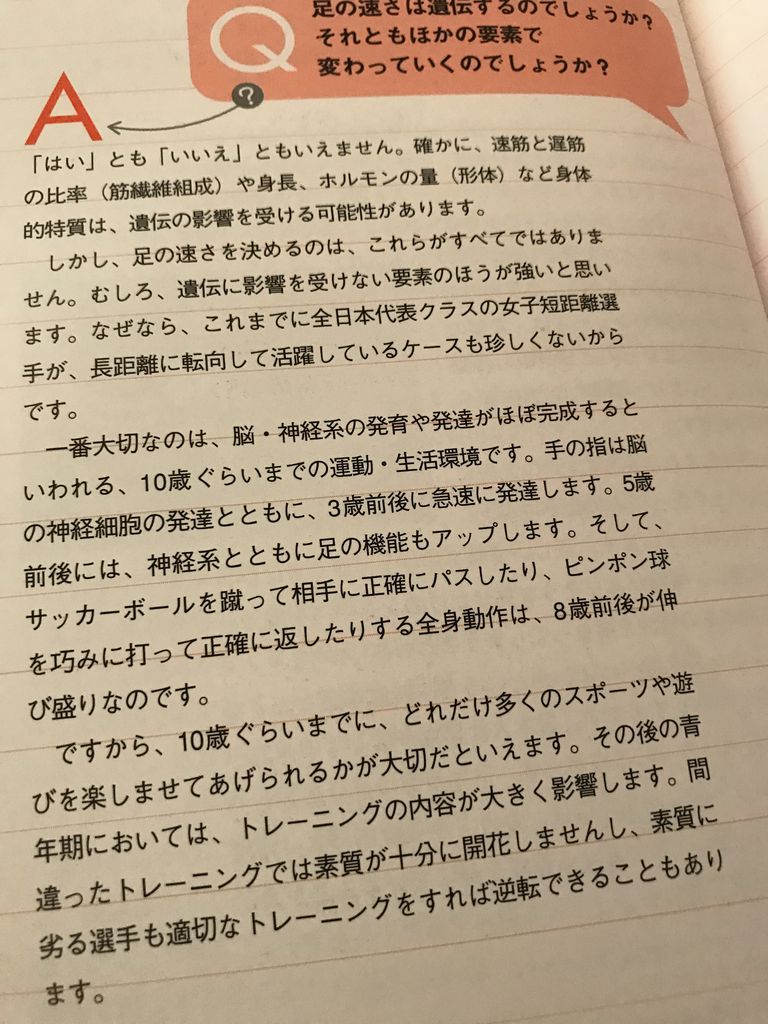 Q
足の速さは遺伝するのでしょうか?
それともほかの要素で
変わっていくのでしょうか?
?
A
「はい」とも「いいえ」ともいえません。確かに、速筋と遅筋
の比率(筋繊維組成)や身長、ホルモンの量(形体)など身体
的特質は、遺伝の影響を受ける可能性があります。
しかし、足の速さを決めるのは、これらがすべてではありま
せん。むしろ、遺伝に影響を受けない要素のほうが強いと思い
ます。なぜなら、これまでに全日本代表クラスの女子短距離選
手が、長距離に転向して活躍しているケースも珍しくないから
です。
一番大切なのは、脳・神経系の発育や発達がほぼ完成すると
いわれる、10歳ぐらいまでの運動・生活環境です。手の指は脳
の神経細胞の発達とともに、3歳前後に急速に発達します。5歳
前後には、神経系とともに足の機能もアップします。そして、
サッカーボールを蹴って相手に正確にパスしたり、ピンポン球
を巧みに打って正確に返したりする全身動作は、8歳前後が伸
び盛りなのです。
ですから、10歳ぐらいまでに、どれだけ多くのスポーツや遊
びを楽しませてあげられるかが大切だといえます。その後の青
年期においては、トレーニングの内容が大きく影響します。間
違ったトレーニングでは素質が十分に開花しませんし、素質に
劣る選手も適切なトレーニングをすれば逆転できることもあり
ます。